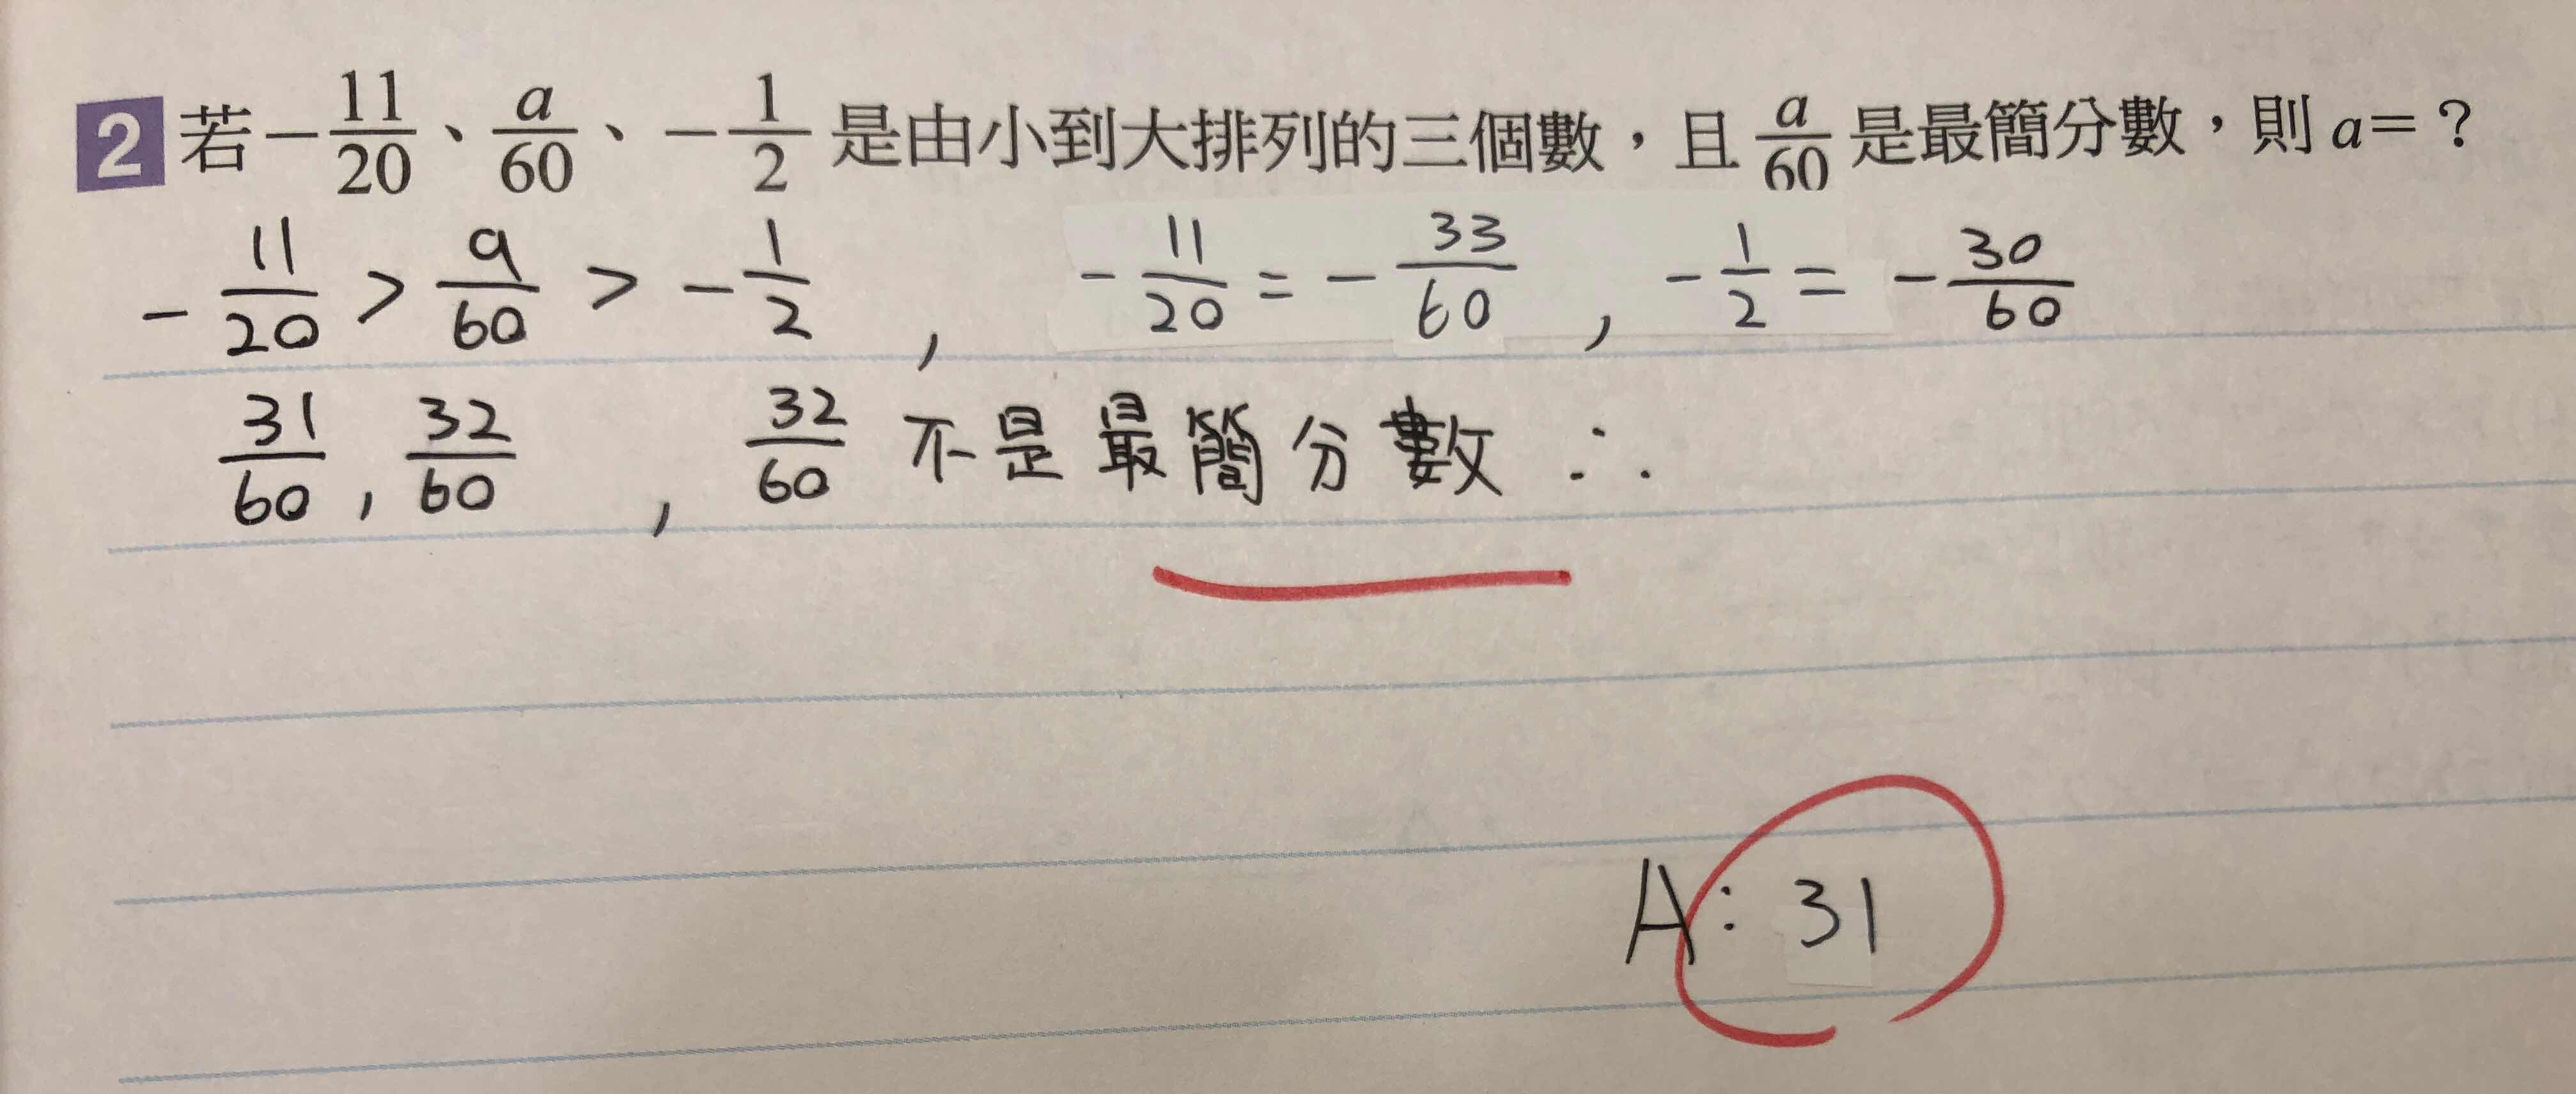 2 若 -11/20、a/60、-1/2 是由小到大排列的三個數，且 a/60 是最簡分數，則 a=？
-11/20 > a/60 > -1/2 , -11/20 = -33/60 , -1/2 = -30/60
31/60 , 32/60 , 32/60 不是最簡分數 ∴
A: 31